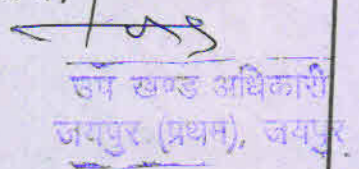 उप खण्ड अधिकारी
जयपुर (प्रथम), जयपुर